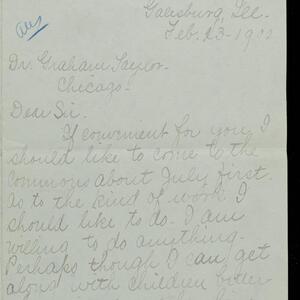 Galesburg, Ill.
Feb. 23-19
Dr. Graham Taylor-
Chicago-
Dear Sir.
If convenient for you I
should like to come to the
commons about July first.
As to the kind of work I
should like to do- I am
willing to do anything-
Perhaps though I can get
along with children better